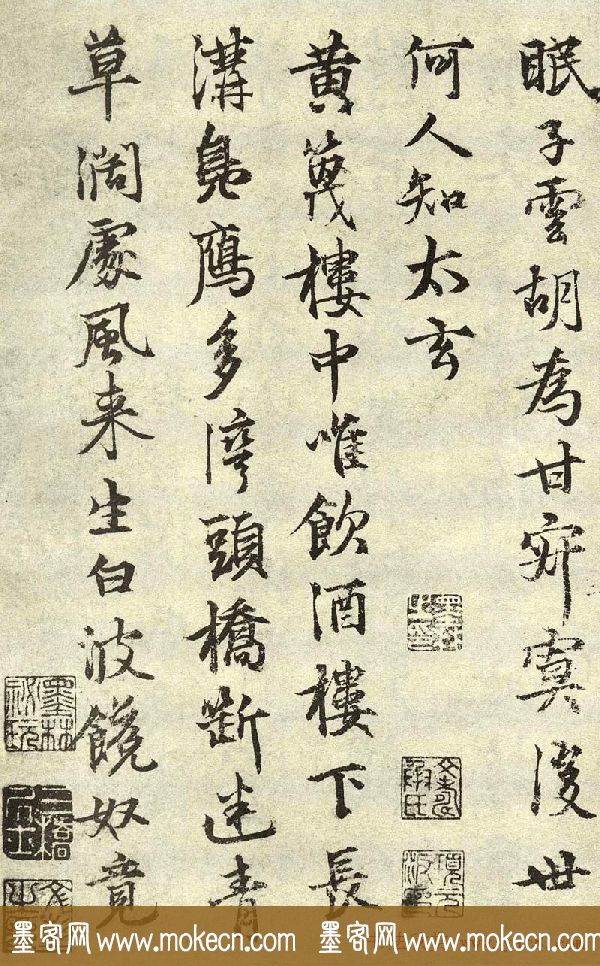 眠子雲胡為甘寂寞後世
何人知太玄
黄篾樓中唯飲酒樓下長
溝鳧鴈多灣頭橋斷迷青
草濶處風来生白波饒奴竟
墨客网 www.mokecn.com 墨客网 www.mokecn.com